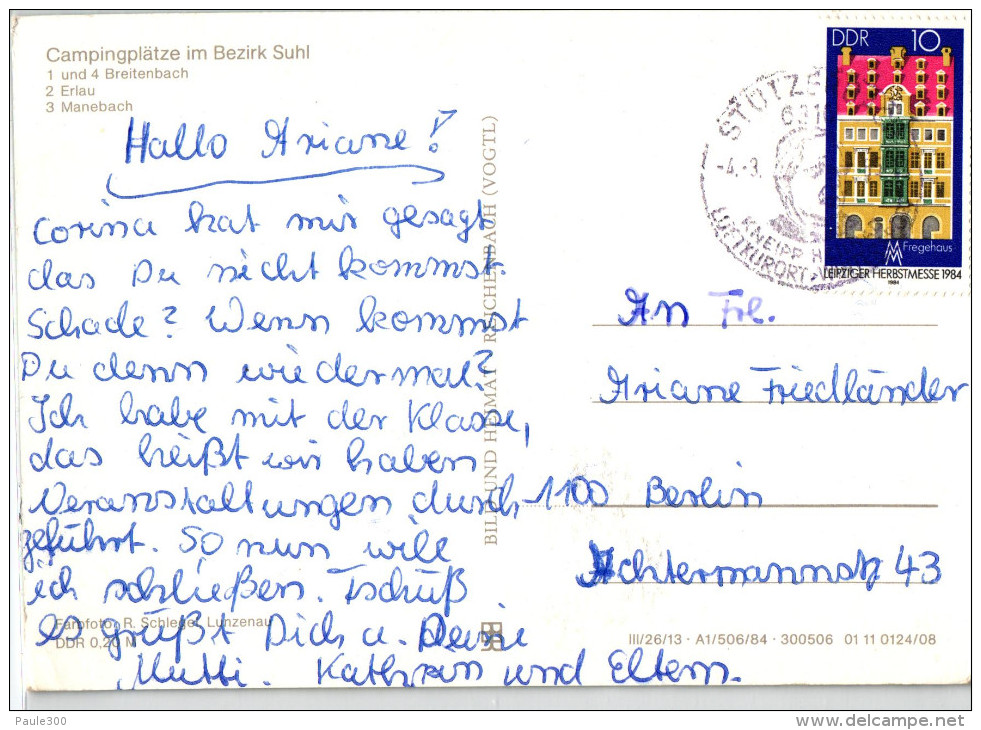 Campingplätze im Bezirk Suhl
1 und 4 Breitenbach
2 Erlau
3 Manebach
Hallo Ariane!
Corina hat mir gesagt
das Du nicht kommst.
Schade? Wenn kommst
Du denn wiedermal?
Ich habe mit der Klasse,
das heißt wir haben
Veranstaltungen durch
geführt. So nun will
ich schließen. Tschüß
es grüßt Dich u. Deine
Mutti. Kathrin und Eltern.
Farbfoto: R. Schlegel, Lunzenau
DDR 0,20 M
BILD UND HEIMAT REICHENBACH (VOGTL)
DDR 10
Fregehaus
LEIPZIGER HERBSTMESSE 1984
1984
-4.-3.
KNEIPP
LUFTKURORT
An Frl.
Ariane Friedländer
1100 Berlin
Achtermannstr 43
III/26/13 · A1/506/84 · 300506 01 11 0124/08
Paule300
www.delcampe.net